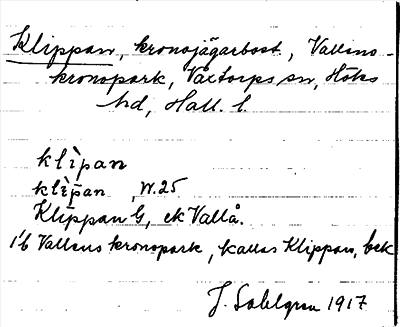 Klippan, kronojägarbost., Vallens-
kronopark, Våxtorps sn, Höks
hd, Hall. l.
klìpan
klìpan W. 25
Klippan G, ek Vallå.
1/6 Vallens kronopark, kallas Klippan, bek
J. Sahlgren 1917